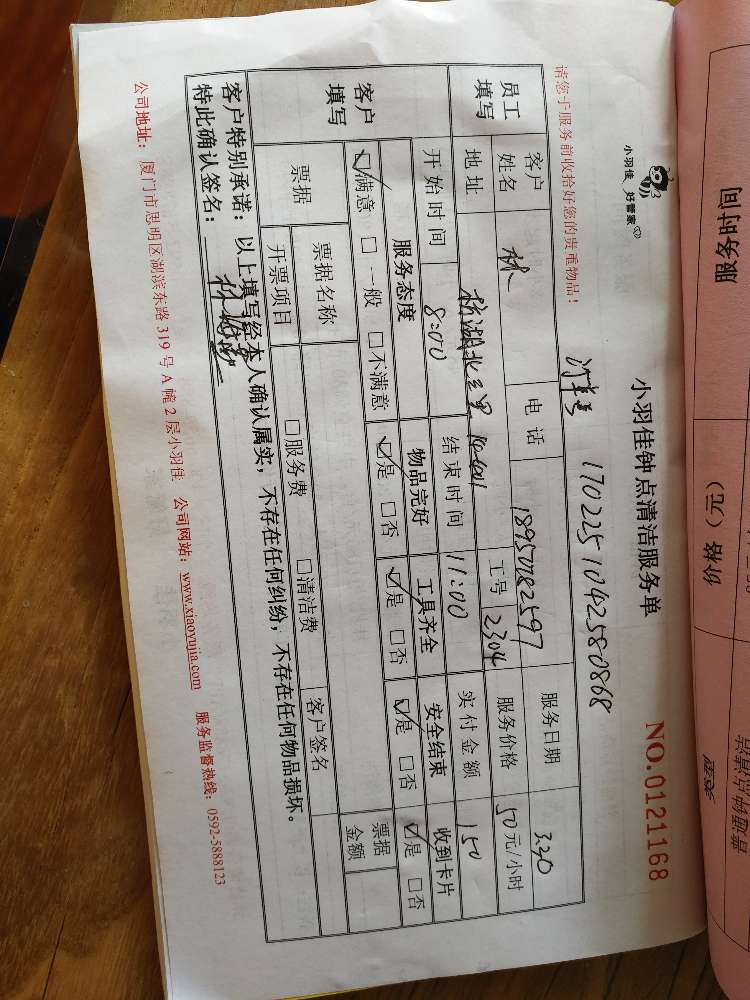 小羽佳 好管家
小羽佳钟点清洁服务单
NO.0121168
请您于服务前收拾好您的贵重物品!
1702251042580868
员工填写
客户姓名 林 电话 18950182597 服务日期 3.30
地址 湖北三里 工号 2304 服务价格 50元/小时
开始时间 8:00 结束时间 11:00 实付金额 150
客户填写
服务态度 物品完好 工具齐全 安全结束 收到卡片
☑满意 □一般 □不满意 ☑是 □否 ☑是 □否 ☑是 □否 ☑是 □否
票据 票据名称 客户签名 票据金额
开票项目 □服务费 □清洁费
客户特别承诺:以上填写经本人确认属实,不存在任何纠纷,不存在任何物品损坏。
特此确认签名:
公司地址: 厦门市思明区湖滨东路319号A幢2层小羽佳 公司网站: www.xiaoyujia.com 服务监督热线: 0592-5888123
服务时间
价格(元)